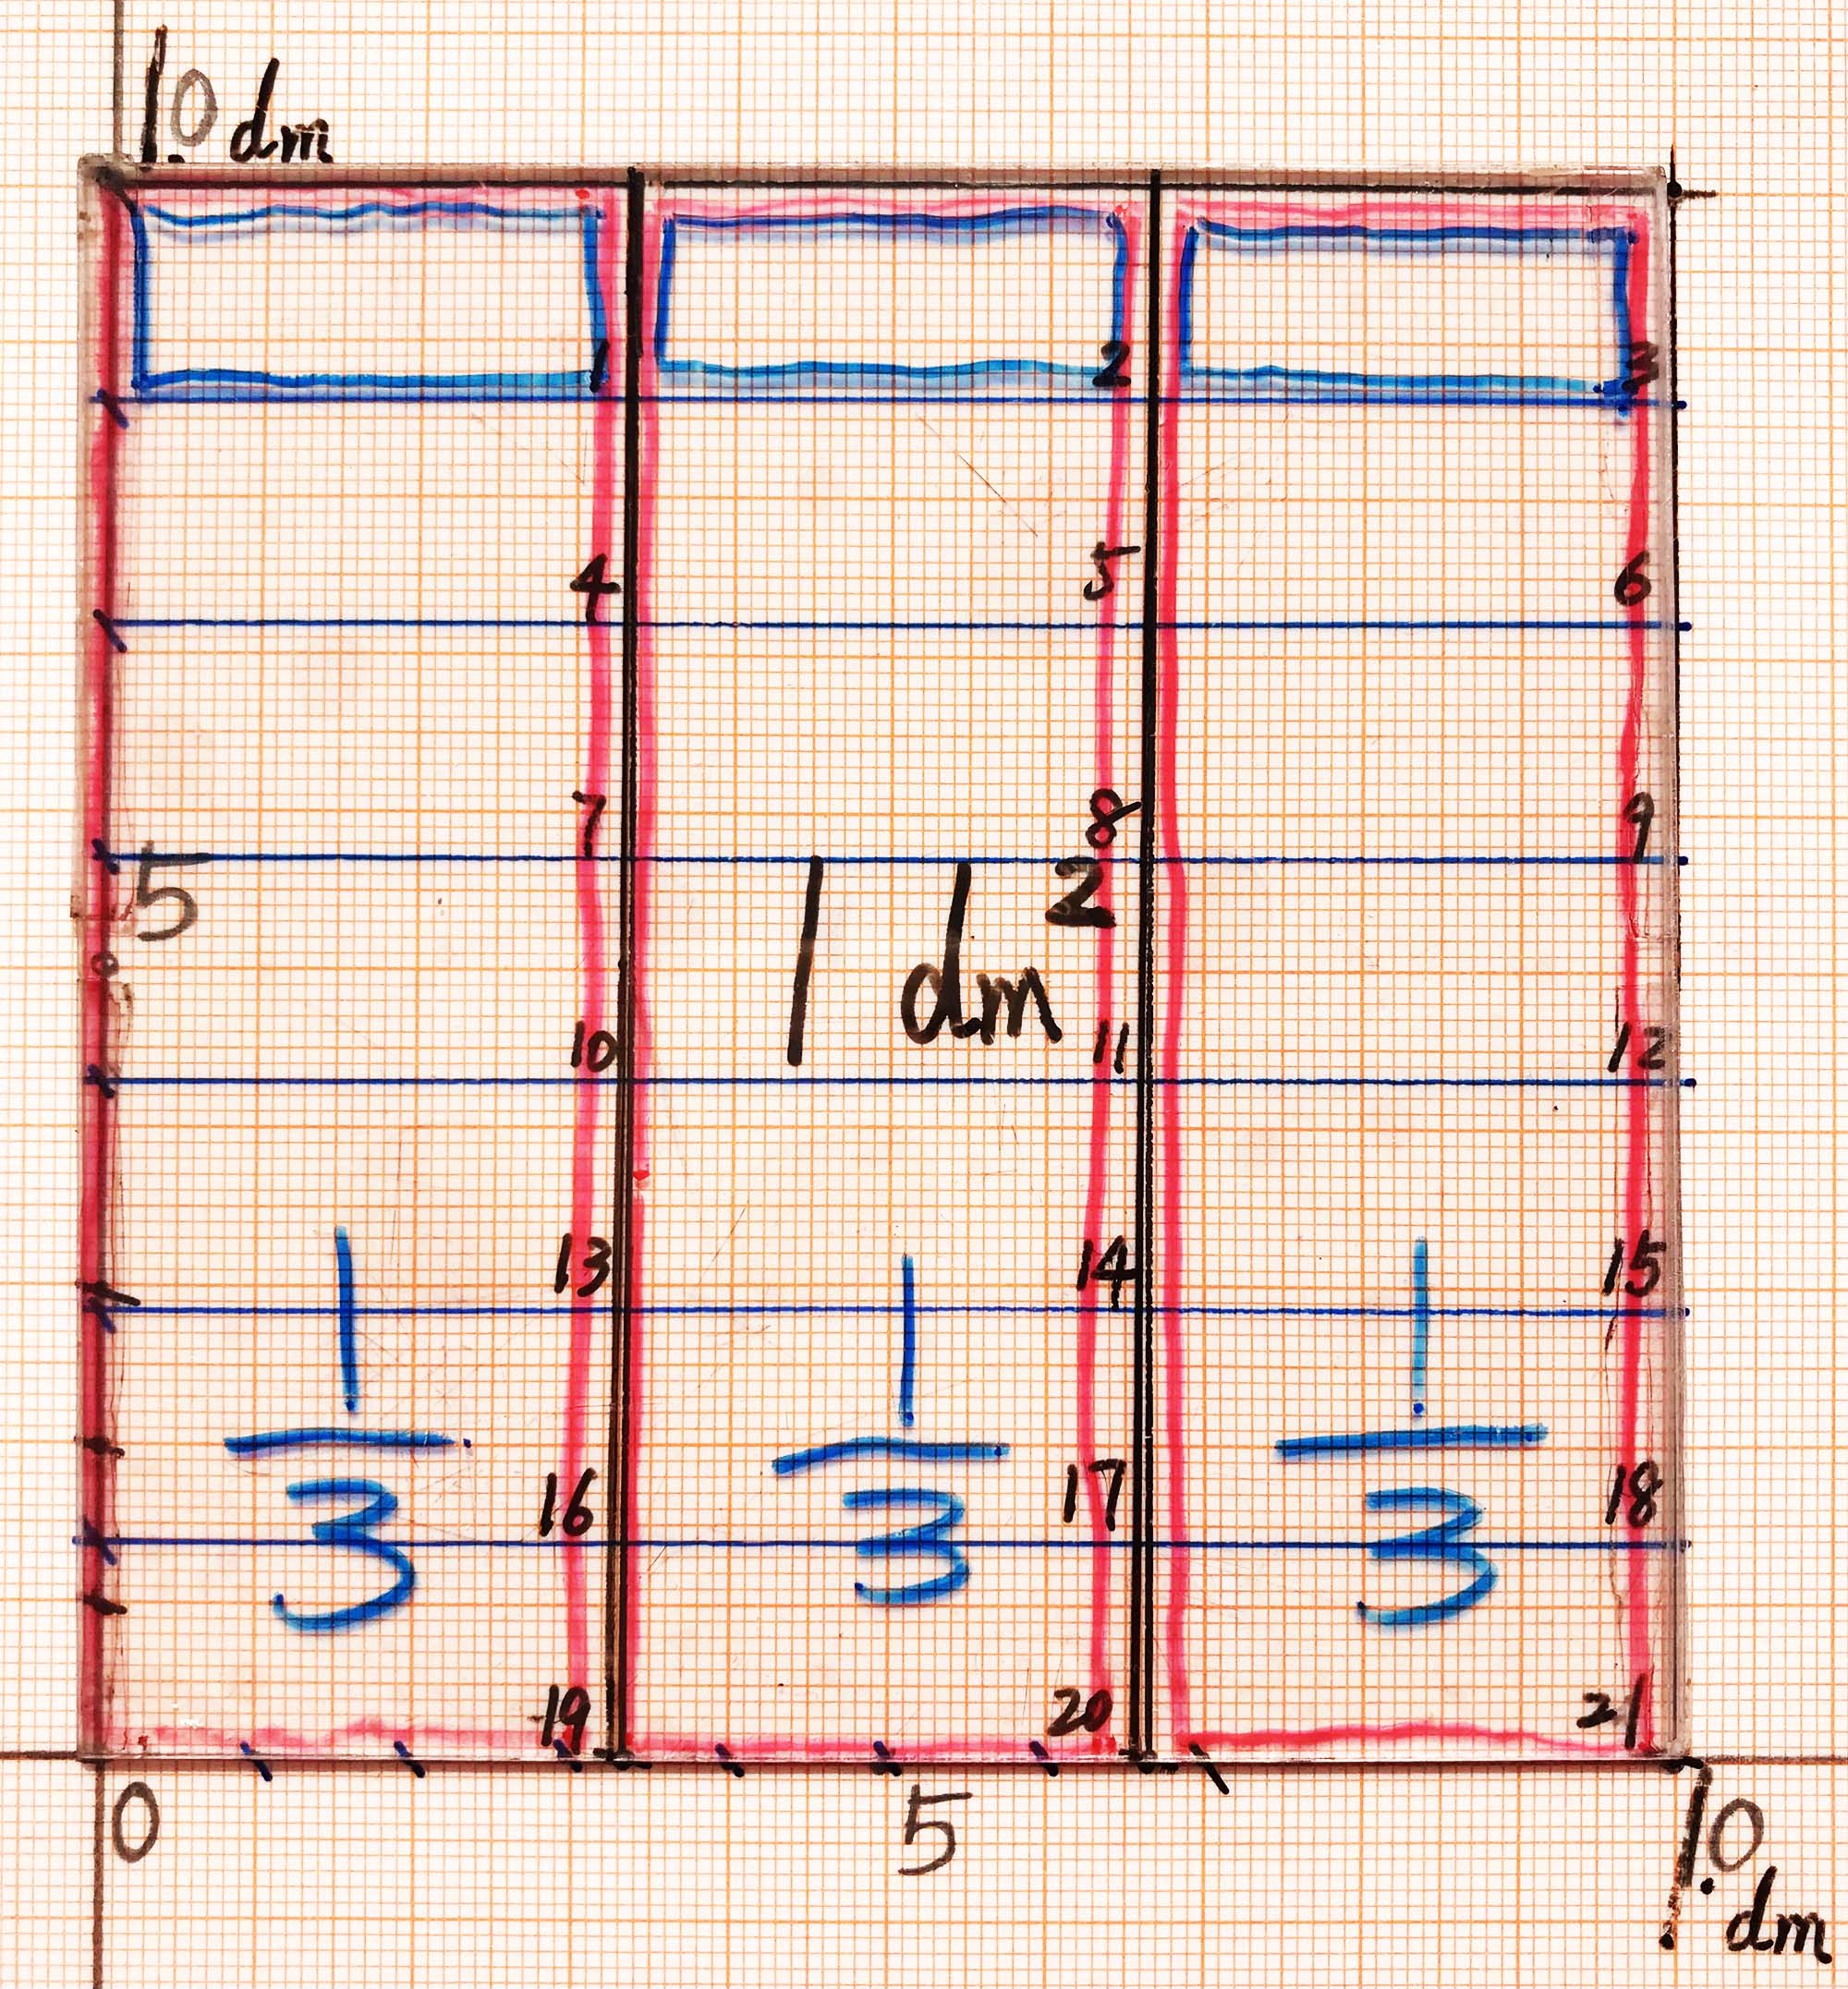 1.0 dm
1 2 3
4 5 6
7 8 9
5
1 dm²
10 11 12
13 14 15
1/3 1/3 1/3
16 17 18
19 20 21
0 5 1.0
dm